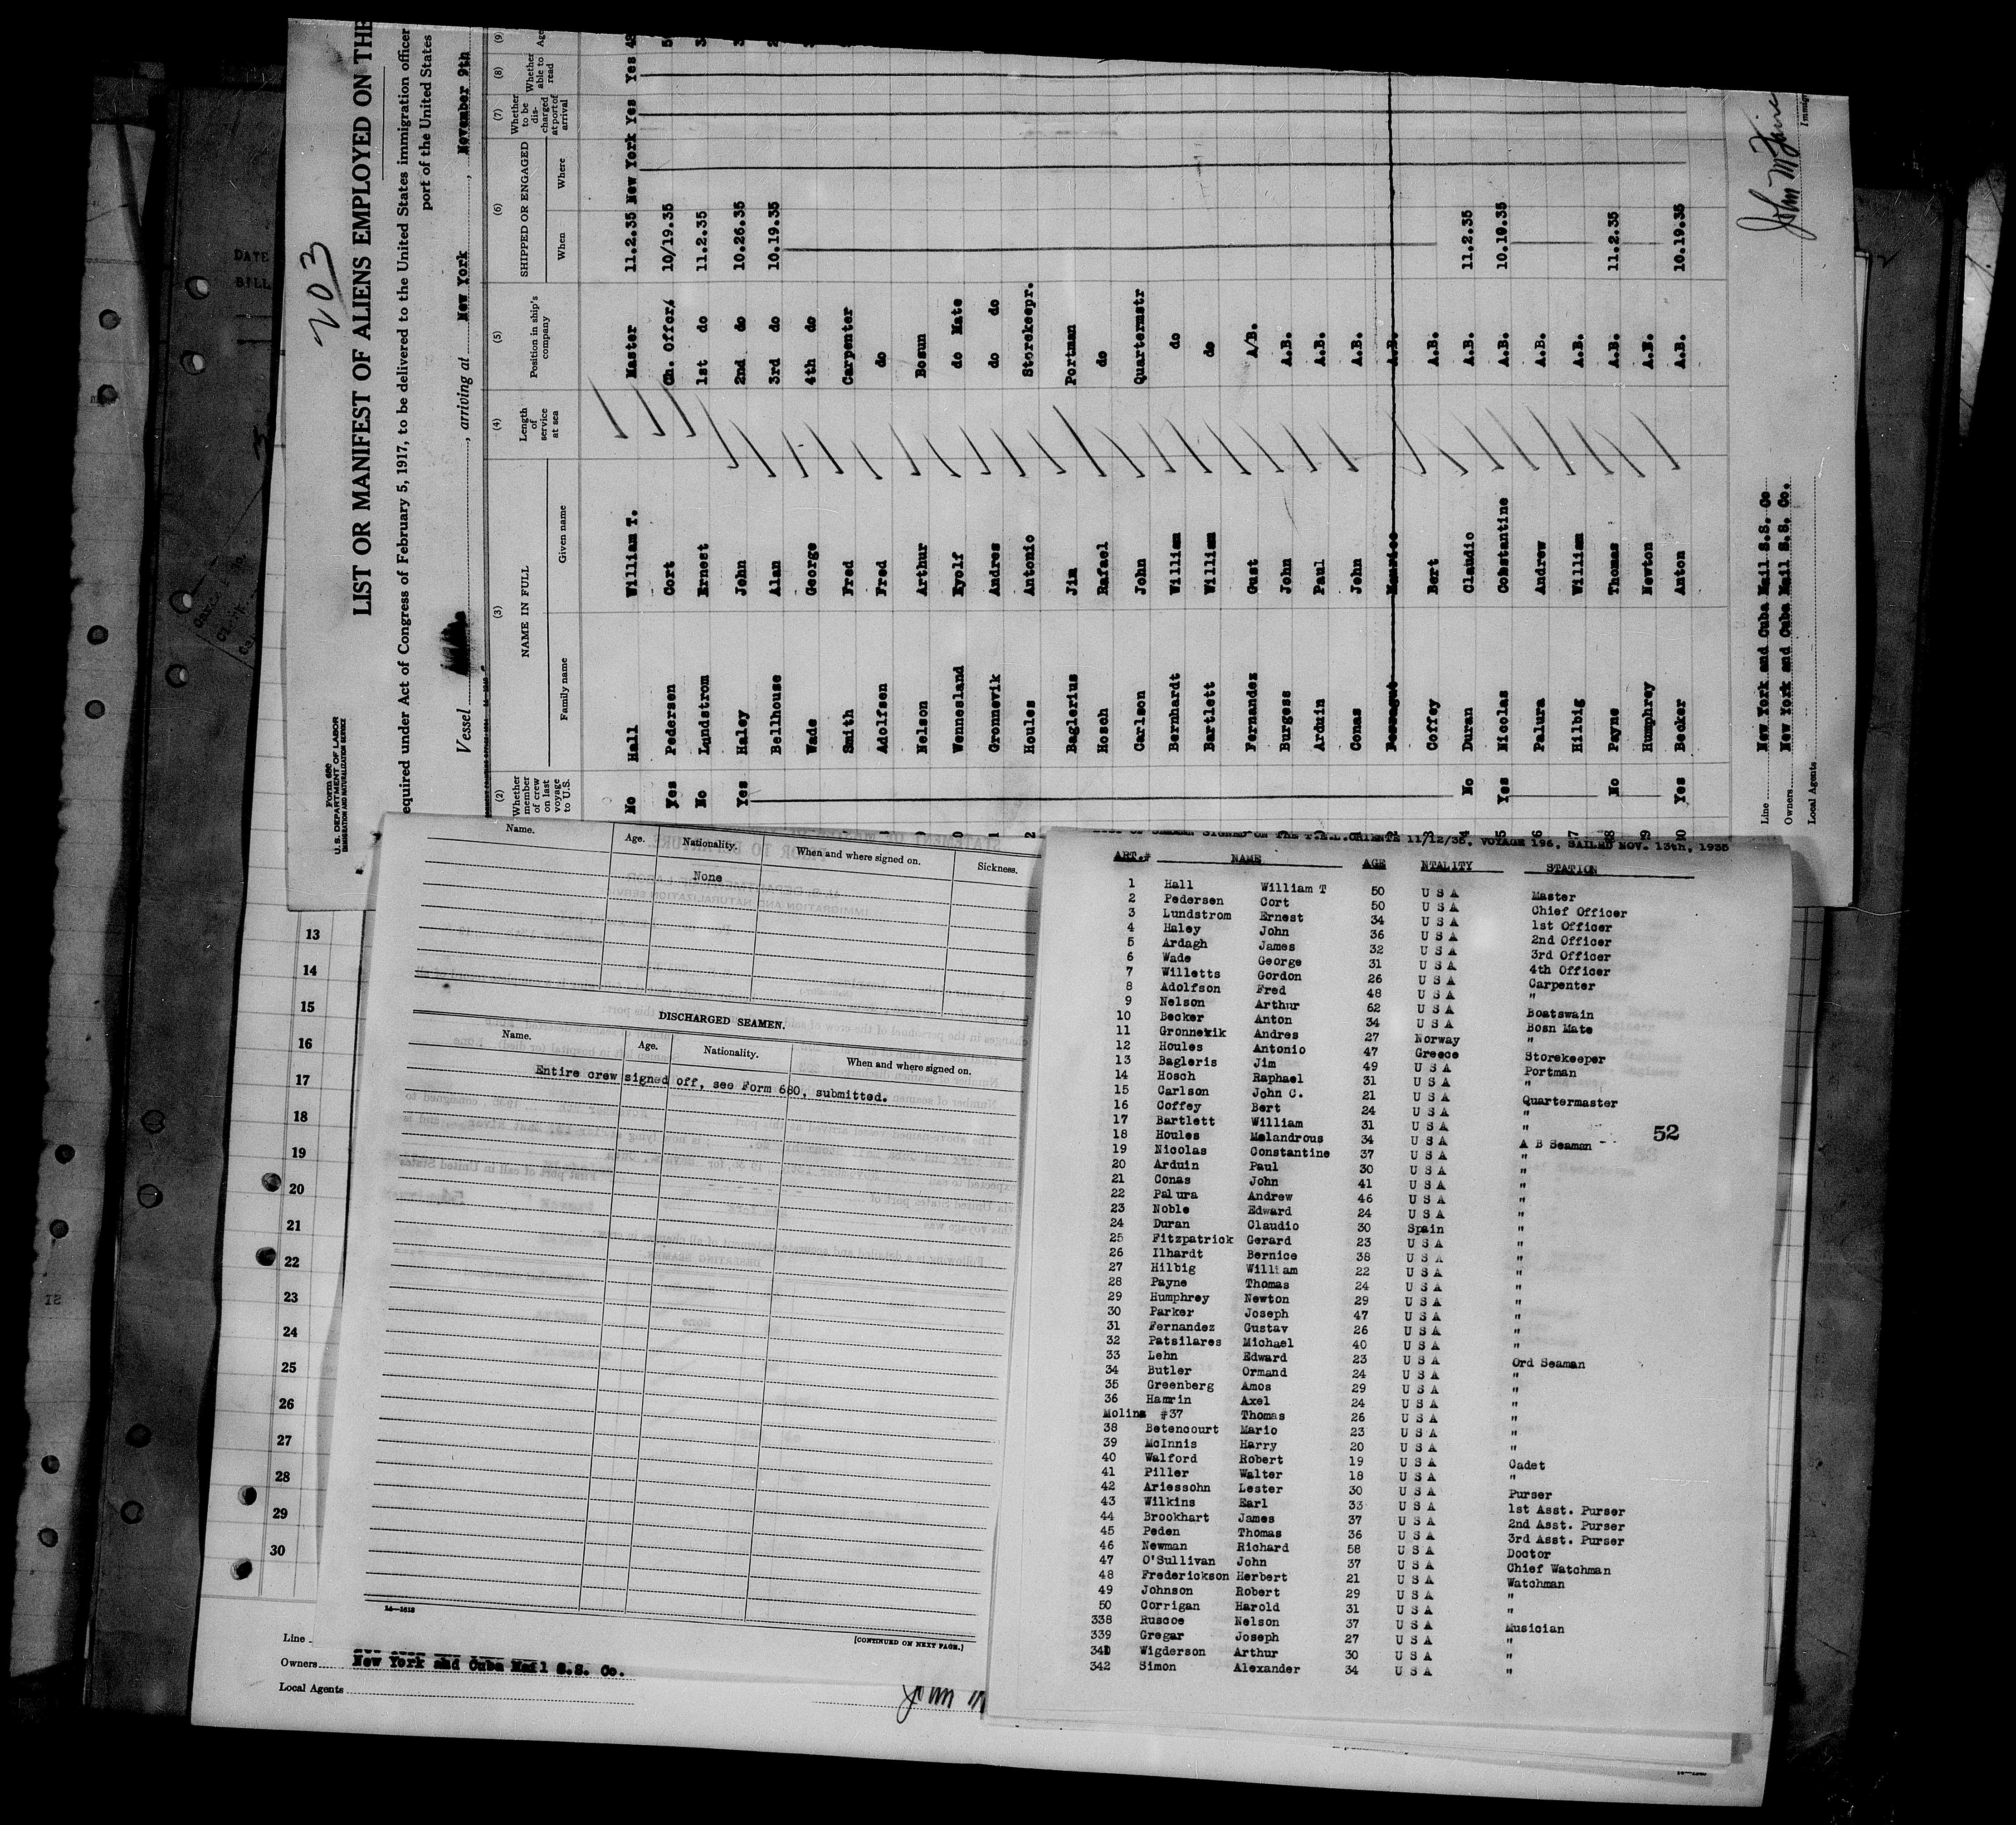 203
LIST OR MANIFEST OF ALIENS EMPLOYED ON THE
equired under Act of Congress of February 5, 1917, to be delivered to the United States immigration officer
port of the United States
Form 680
U. S. DEPARTMENT OF LABOR
IMMIGRATION AND NATURALIZATION SERVICE
Vessel , arriving at New York , November 9th
(2) (3) (4) (5) (6) (7) (8) (9)
Whether member of crew on last voyage to U.S. NAME IN FULL Family name Given name Length of service at sea Position in ship's company SHIPPED OR ENGAGED When Where Whether to be discharged at port of arrival Whether able to read Age
No Hall William T. Master 11.2.35 New York Yes Yes
Yes Pedersen Cort Ch. Offcr. 10/19.35
No Lundstrom Ernest 1st do 11.2.35
Yes Haley John 2nd do 10.26.35
Bellhouse Alan 3rd do 10.19.35
Wade George 4th do
Smith Fred Carpenter
Adolfsen Fred do
Nelson Arthur Bosun
Wennesland Eyolf do Mate
Gronnevik Andres do do
Houles Antonio Storekeepr.
Baglerius Jim Portman
Hosch Rafael do
Carlson John Quartermstr
Bernhardt William do
Bartlett William do
Fernandez Gust A/B.
Burgess John A.B.
Arduin Paul A.B.
Conas John A.B.
Maurice A.B.
Coffey Bert A.B.
No Duran Claudio A.B. 11.2.35
Yes Nicolas Constantine A.B. 10.19.35
Palura Andrew A.B.
Hilbig William A.B.
No Payne Thomas A.B. 11.2.35
Humphrey Newton A.B.
Yes Becker Anton A.B. 10.19.35
Line New York and Cuba Mail S.S. Co
Owners New York and Cuba Mail S.S. Co.
Local Agents
Name. Age. Nationality. When and where signed on. Sickness.
None
DISCHARGED SEAMEN.
Name. Age. Nationality. When and where signed on.
Entire crew signed off, see Form 680, submitted.
14—1618
[CONTINUED ON NEXT PAGE.]
13
14
15
16
17
18
19
20
21
22
23
24
25
26
27
28
29
30
Line
Owners New York and Cuba Mail S.S. Co.
Local Agents
John
LIST OF SEAMEN SIGNED ON THE T.E.L.ORIENTE 11/12/35, VOYAGE 196, SAILED NOV. 13th, 1935
ART.# NAME AGE NTALITY STATION
1 Hall William T 50 U S A Master
2 Pedersen Cort 50 U S A Chief Officer
3 Lundstrom Ernest 34 U S A 1st Officer
4 Haley John 36 U S A 2nd Officer
5 Ardagh James 32 U S A 3rd Officer
6 Wade George 31 U S A 4th Officer
7 Willetts Gordon 26 U S A Carpenter
8 Adolfson Fred 48 U S A "
9 Nelson Arthur 62 U S A Boatswain
10 Becker Anton 34 U S A Bosn Mate
11 Gronnevik Andres 27 Norway "
12 Houles Antonio 47 Greece Storekeeper
13 Bagleris Jim 49 U S A Portman
14 Hosch Raphael 31 U S A "
15 Carlson John C. 21 U S A Quartermaster
16 Coffey Bert 24 U S A "
17 Bartlett William 31 U S A "
18 Houles Melandrous 34 U S A A B Seaman
52
19 Nicolas Constantine 37 U S A "
20 Arduin Paul 30 U S A "
21 Conas John 41 U S A "
22 Palura Andrew 46 U S A "
23 Noble Edward 24 U S A "
24 Duran Claudio 30 Spain "
25 Fitzpatrick Gerard 23 U S A "
26 Ilhardt Bernice 38 U S A "
27 Hilbig William 22 U S A "
28 Payne Thomas 24 U S A "
29 Humphrey Newton 29 U S A "
30 Parker Joseph 47 U S A "
31 Fernandez Gustav 26 U S A "
32 Patsilares Michael 40 U S A "
33 Lehn Edward 23 U S A Ord Seaman
34 Butler Ormand 24 U S A "
35 Greenberg Amos 29 U S A "
36 Hamrin Axel 24 U S A "
Molina #37 Thomas 26 U S A "
38 Betencourt Mario 23 U S A "
39 McInnis Harry 20 U S A "
40 Walford Robert 19 U S A Cadet
41 Piller Walter 18 U S A "
42 Ariessohn Lester 30 U S A Purser
43 Wilkins Earl 33 U S A 1st Asst. Purser
44 Brookhart James 37 U S A 2nd Asst. Purser
45 Peden Thomas 36 U S A 3rd Asst. Purser
46 Newman Richard 58 U S A Doctor
47 O'Sullivan John 37 U S A Chief Watchman
48 Frederickson Herbert 21 U S A Watchman
49 Johnson Robert 29 U S A "
50 Corrigan Harold 31 U S A "
338 Ruscoe Nelson 37 U S A Musician
339 Gregar Joseph 27 U S A "
341 Wigderson Arthur 30 U S A "
342 Simon Alexander 34 U S A "